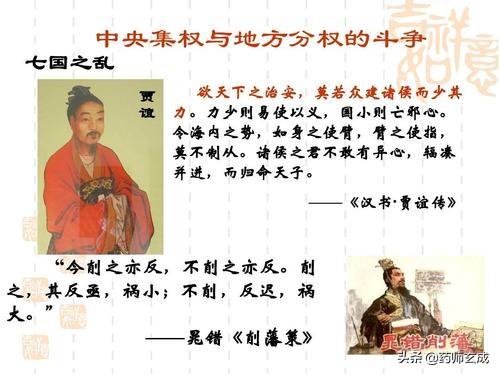 中央集权与地方分权的斗争
七国之乱
贾谊
欲天下之治安，莫若众建诸侯而少其
力。力少则易使以义，国小则亡邪心。
令海内之势，如身之使臂，臂之使指，
莫不制从。诸侯之君不敢有异心，辐凑
并进，而归命天子。
——《汉书·贾谊传》
“今削之亦反，不削之亦反。削
之，其反亟，祸小；不削，反迟，祸
大。”
——晁错《削藩策》
晁错削藩
头条@药师玄成
吉祥如意